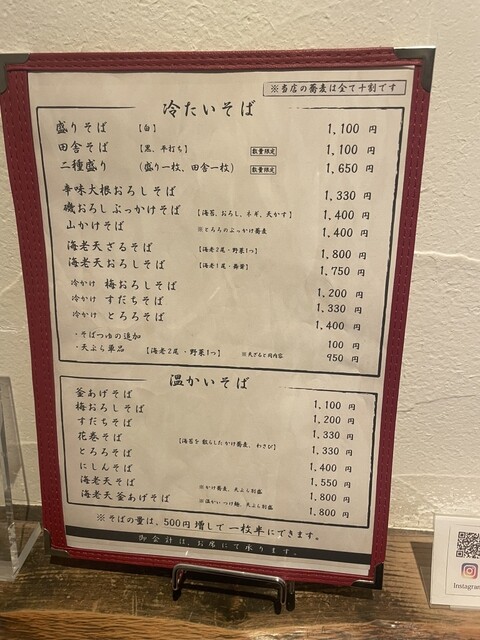 ※当店の蕎麦は全て十割です
冷たいそば
盛りそば 【白】 1,100 円
田舎そば 【黒、平打ち】 数量限定 1,100 円
二種盛り (盛り一枚、田舎一枚) 数量限定 1,650 円
辛味大根おろしそば 1,330 円
磯おろしぶっかけそば 【海苔、おろし、ネギ、天かす】 1,400 円
山かけそば ※とろろのぶっかけ蕎麦 1,400 円
海老天ざるそば 【海老2尾・野菜1つ】 1,800 円
海老天おろしそば 【海老1尾・舞茸】 1,750 円
冷かけ 梅おろしそば 1,200 円
冷かけ すだちそば 1,330 円
冷かけ とろろそば 1,400 円
・そばつゆの追加 100 円
・天ぷら単品 【海老2尾・野菜1つ】 ※天ざると同内容 950 円
温かいそば
釜あげそば 1,100 円
梅おろしそば 1,200 円
すだちそば 1,330 円
花巻そば 【海苔を散らしたかけ蕎麦、わさび】 1,330 円
とろろそば 1,400 円
にしんそば 1,550 円
海老天そば ※かけ蕎麦、天ぷら別盛 1,800 円
海老天釜あげそば ※温かいつけ麺、天ぷら別盛 1,800 円
※そばの量は、500円増しで一枚半にできます。
御会計は、お席にて承ります。
Instagram